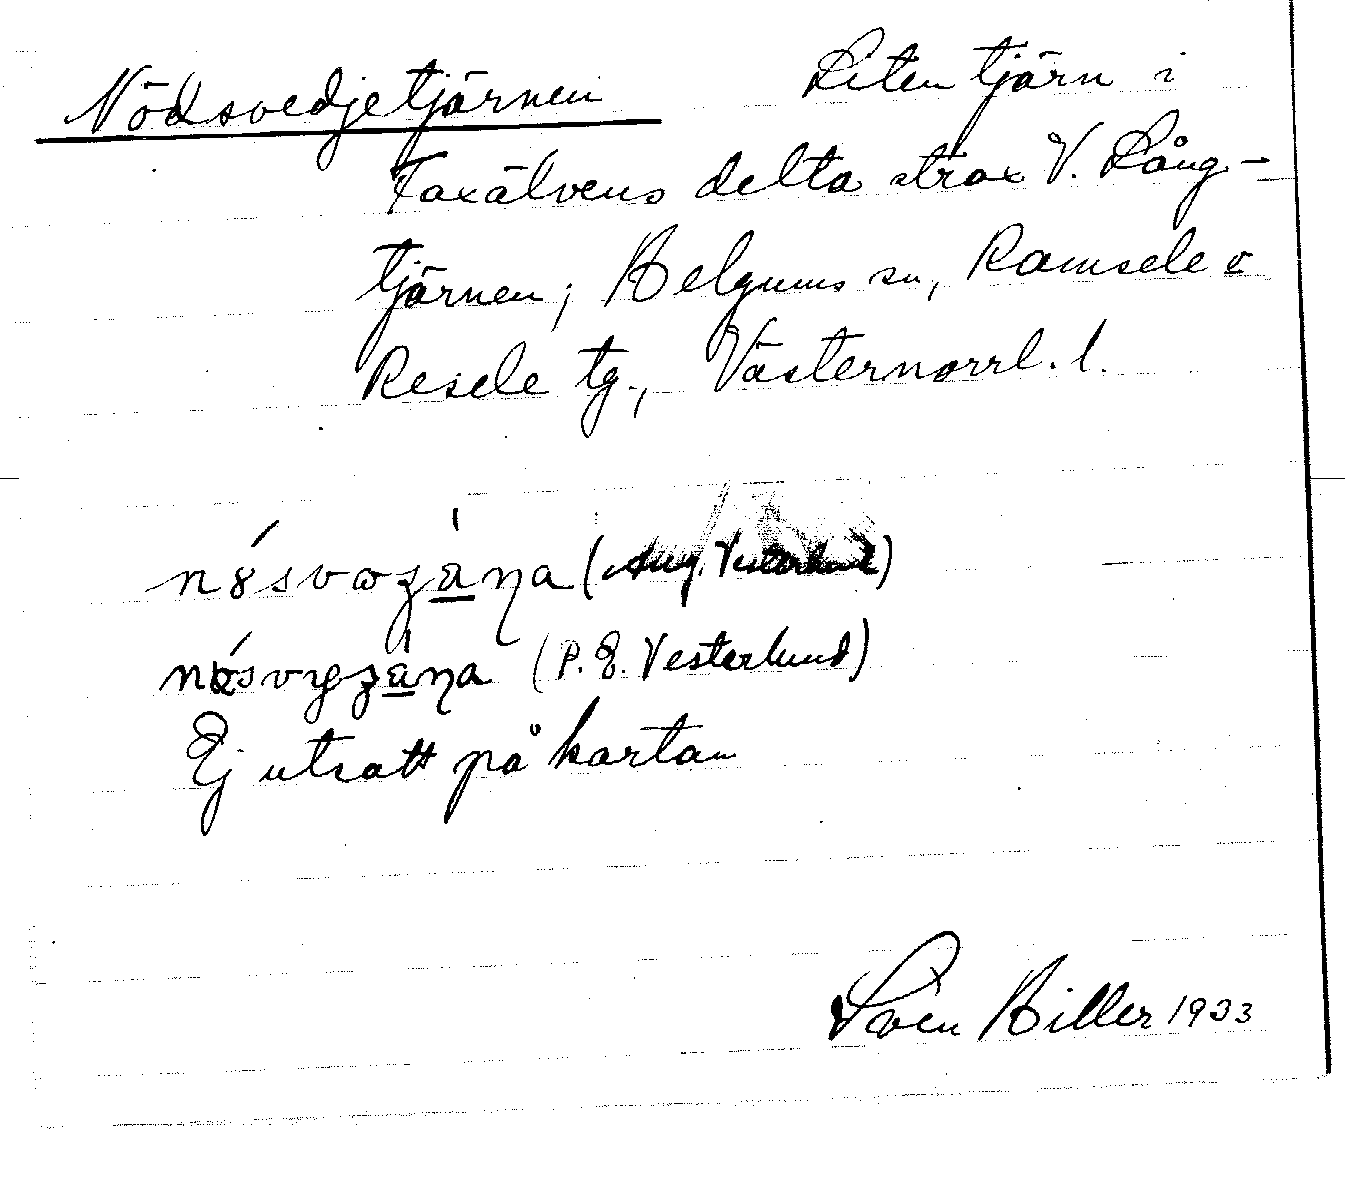 Nödsvedjetjärnen Liten tjärn i
Faxälvens delta strax V. Lång-
tjärnen; Helgums sn, Ramsele o
Resele tg., Västernorrl. l.
(Aug. Vesterlund)
(P. E. Vesterlund)
Ej utsatt på kartan
Sven Hiller 1933